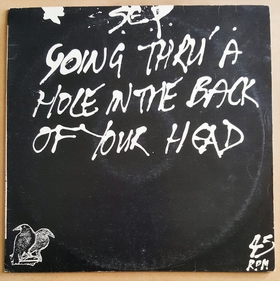 S.E.X.
GOING THRU' A
HOLE IN THE BACK
OF YOUR HEAD
45
RPM